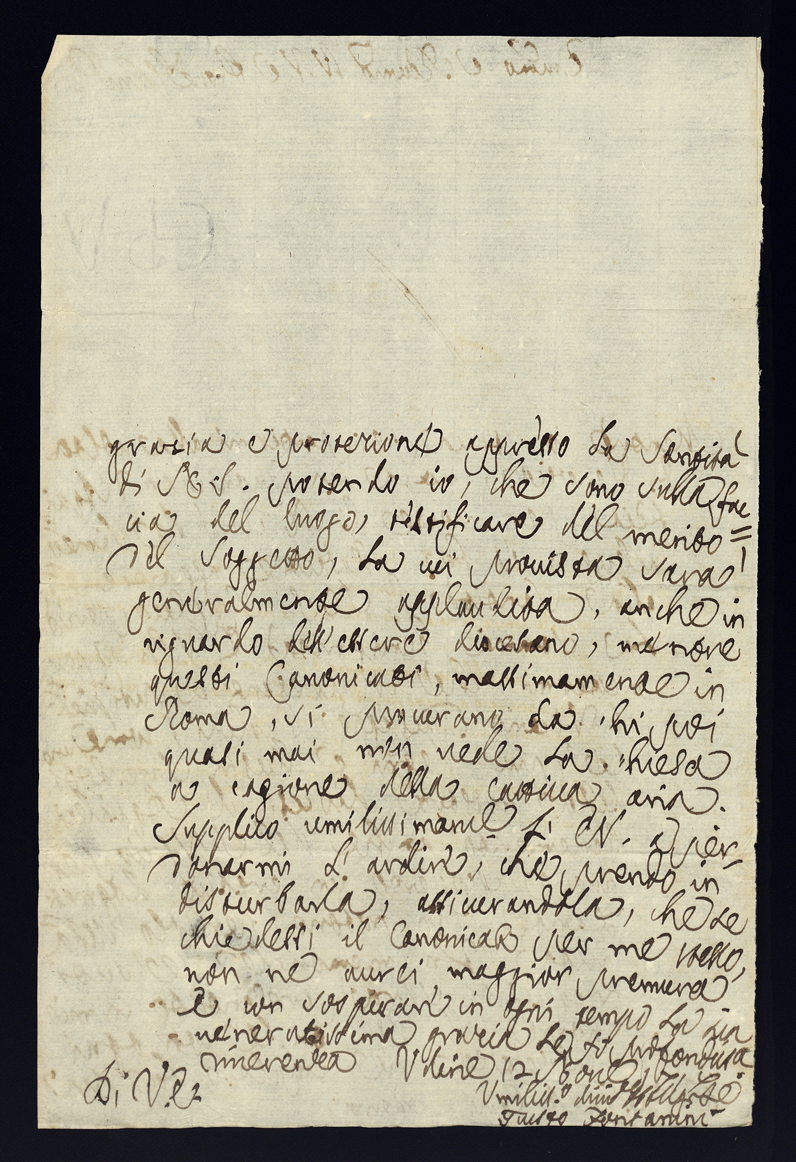 grazia e protezione appresso la Santità
di N. S. potendo io, che sono sulla fac=
cia del luogo, testificare del merito
del soggetto, la cui provista sarà
generalmente applaudita, anche in
riguardo dell'essere diocesano, mentre
questi Canonicati, massimamente in
Roma, si procurano da chi poi
quasi mai non vede la Chiesa
a cagione della cattiva aria.
Supplico umilissimamte l' E.V. a per-
donarmi l'ardire, che prendo in
disturbarla, assicurandola, che se
chiedessi il Canonicato per me stesso,
non ne aurei maggior premura
E con sospirare in ogni tempo la sua
veneratissima grazia le fo profondissima
riverenza Udine 12
Di V.E.
Umiliss.o
Giusto Fontanini